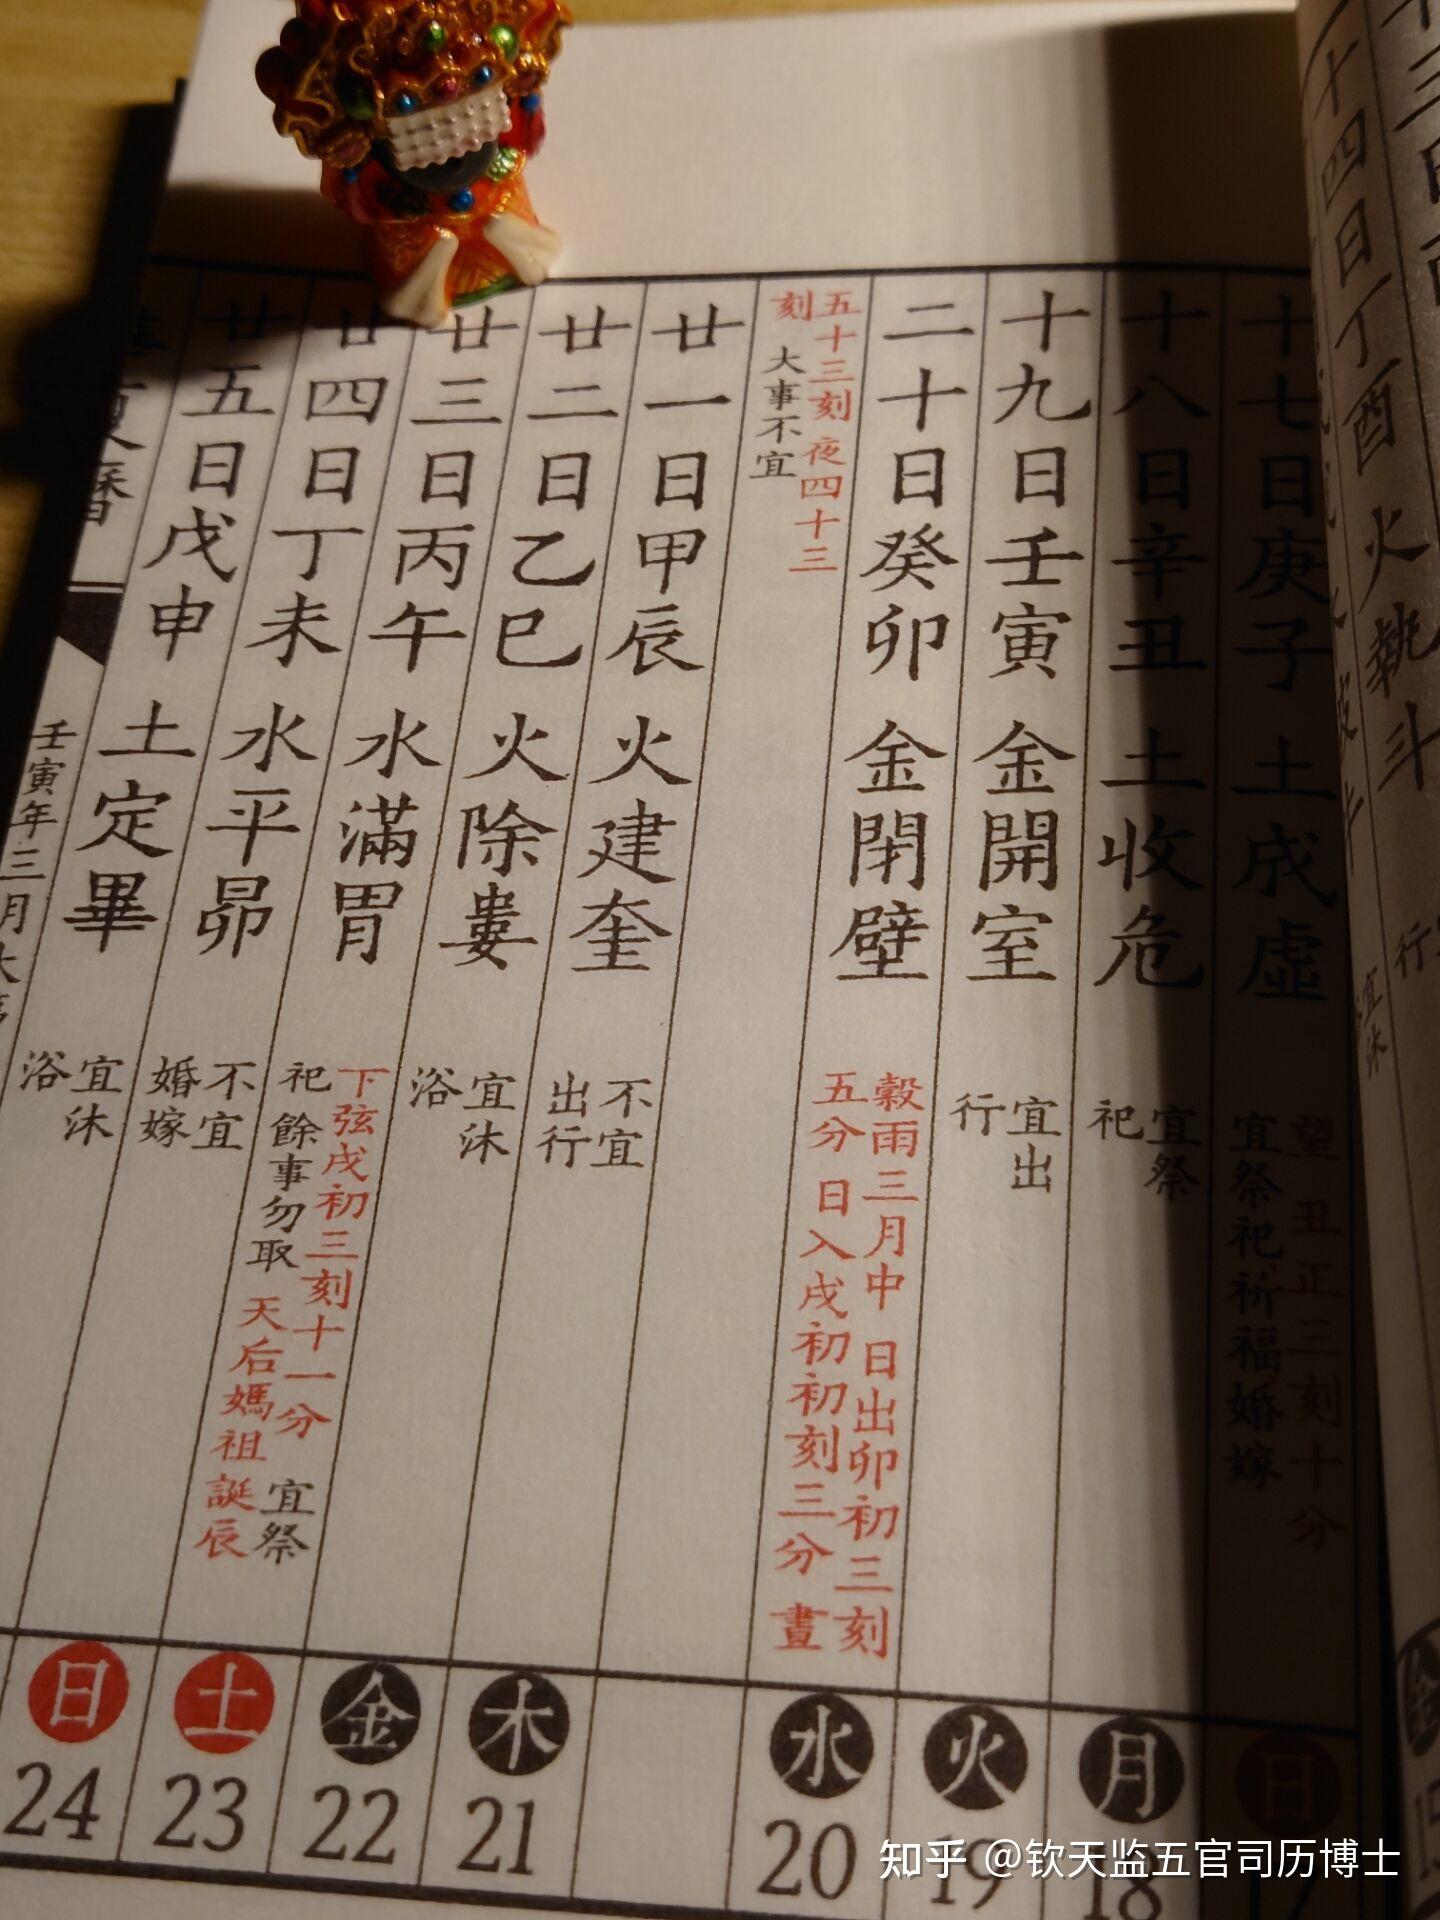 十四日丁酉 火執斗
十七日庚子 土成虛
望 丑正三刻十分
宜祭祀祈福婚嫁
日
17
十八日辛丑 土收危
宜祭
祀
月
18
十九日壬寅 金開室
宜出
行
火
19
二十日癸卯 金閉壁
穀雨三月中 日出卯初三刻
五分 日入戌初初刻三分 晝
水
20
五十三刻 夜四十三
刻 大事不宜
廿一日甲辰 火建奎
不宜
出行
木
21
廿二日乙巳 火除婁
宜沐
浴
金
22
廿三日丙午 水滿胃
下弦戌初三刻十一分 宜祭
祀 餘事勿取 天后媽祖誕辰
土
23
廿四日丁未 水平昴
不宜
婚嫁
日
24
廿五日戊申 土定畢
宜沐
浴
壬寅年三月大
知乎 @钦天监五官司历博士